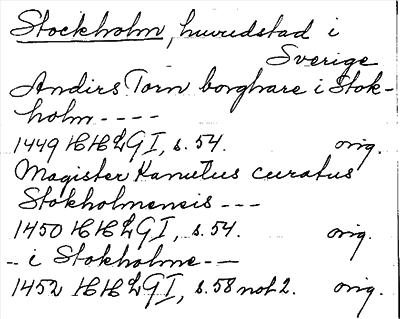 Stockholm, huvudstad i
Sverige
Andirs Torn borghare i Stok-
holm ----
1449 HHLG I, s. 54. orig.
Magister Kanutus curatus
Stokholmensis ---
1450 HHLG I, s. 54. orig.
-- i Stokholme --
1452 HHLG I, s. 58 not 2. orig.